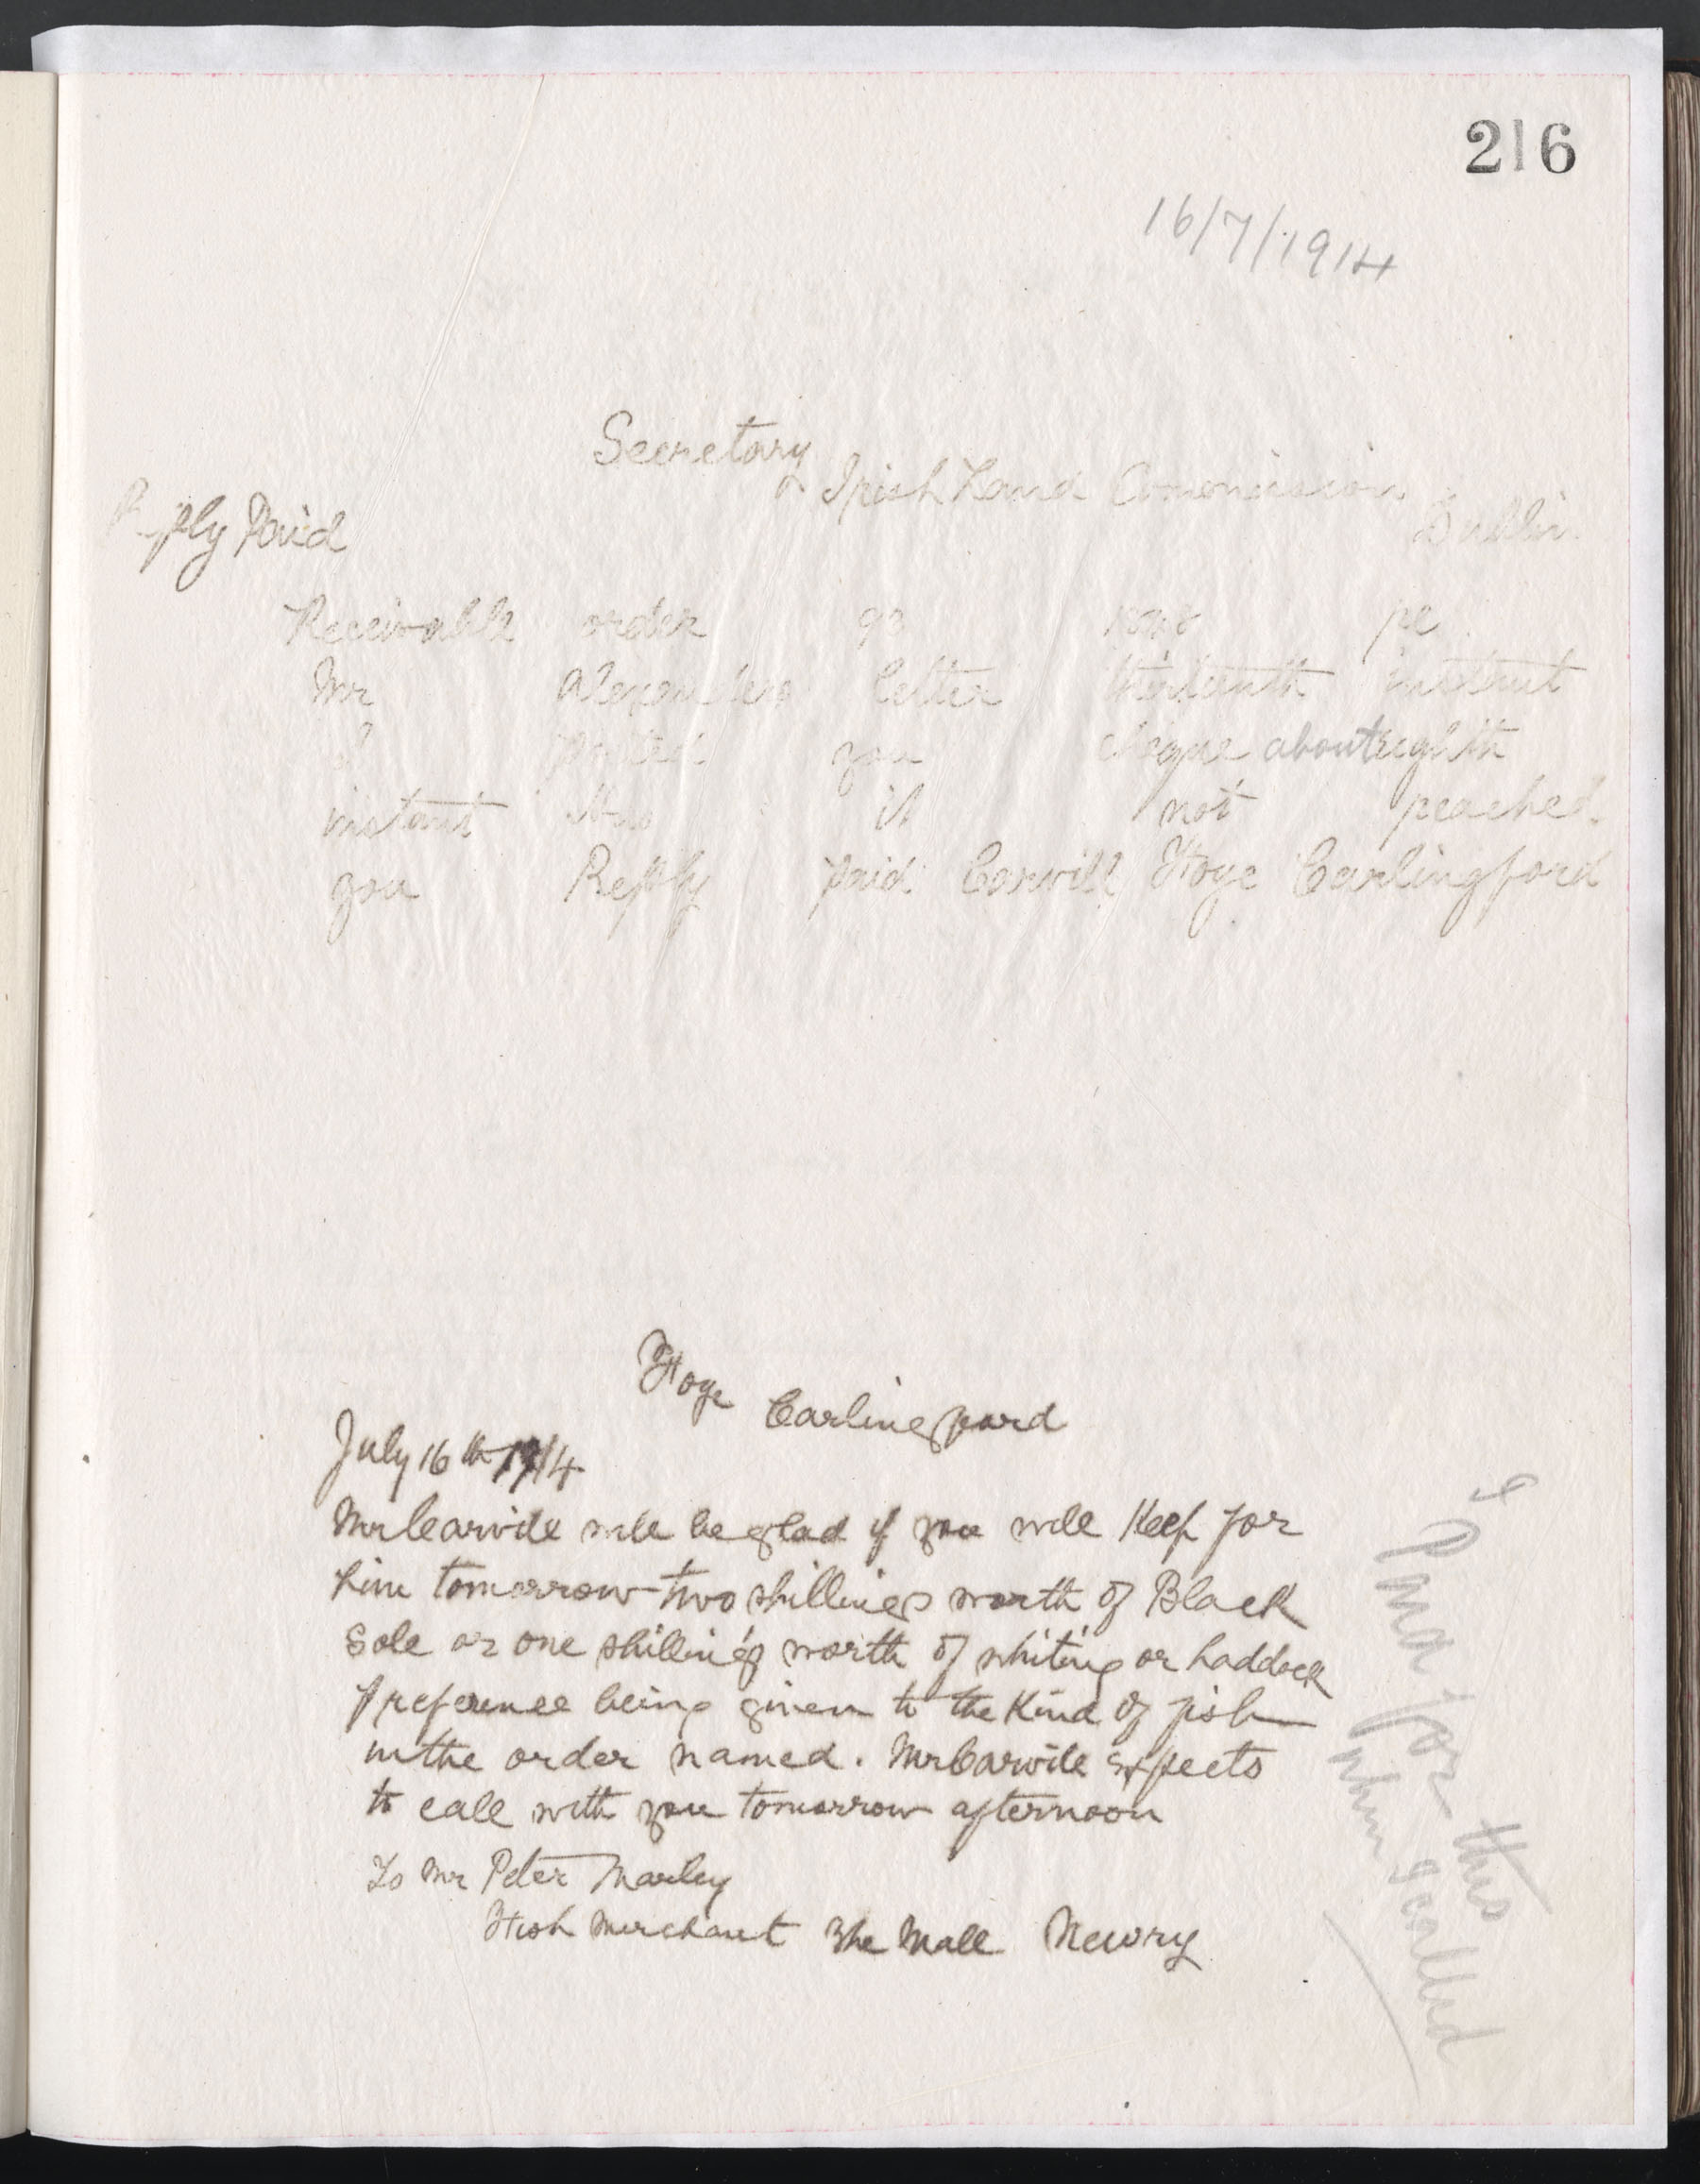 216
16/7/1914
Secretary
Irish Land Commission
Dublin
Reply Paid
Receivable order 93 re
Mr Alexanders letter thirteenth instant
I posted you cheque about eighth
instant Has it not reached
you Reply paid Carvill Ffoye Carlingford
Ffoye Carlingford
July 16th 1914
Mr Carvill will be glad if you will Keep for
him tomorrow two shillings worth of Black
Sole or one shilling's worth of whiting or haddock
preference being given to the Kind of fish
in the order named. Mr Carvill expects
to call with you tomorrow afternoon
To Mr Peter Marley
Fish Merchant The Mall Newry
I Paid for this
when I called